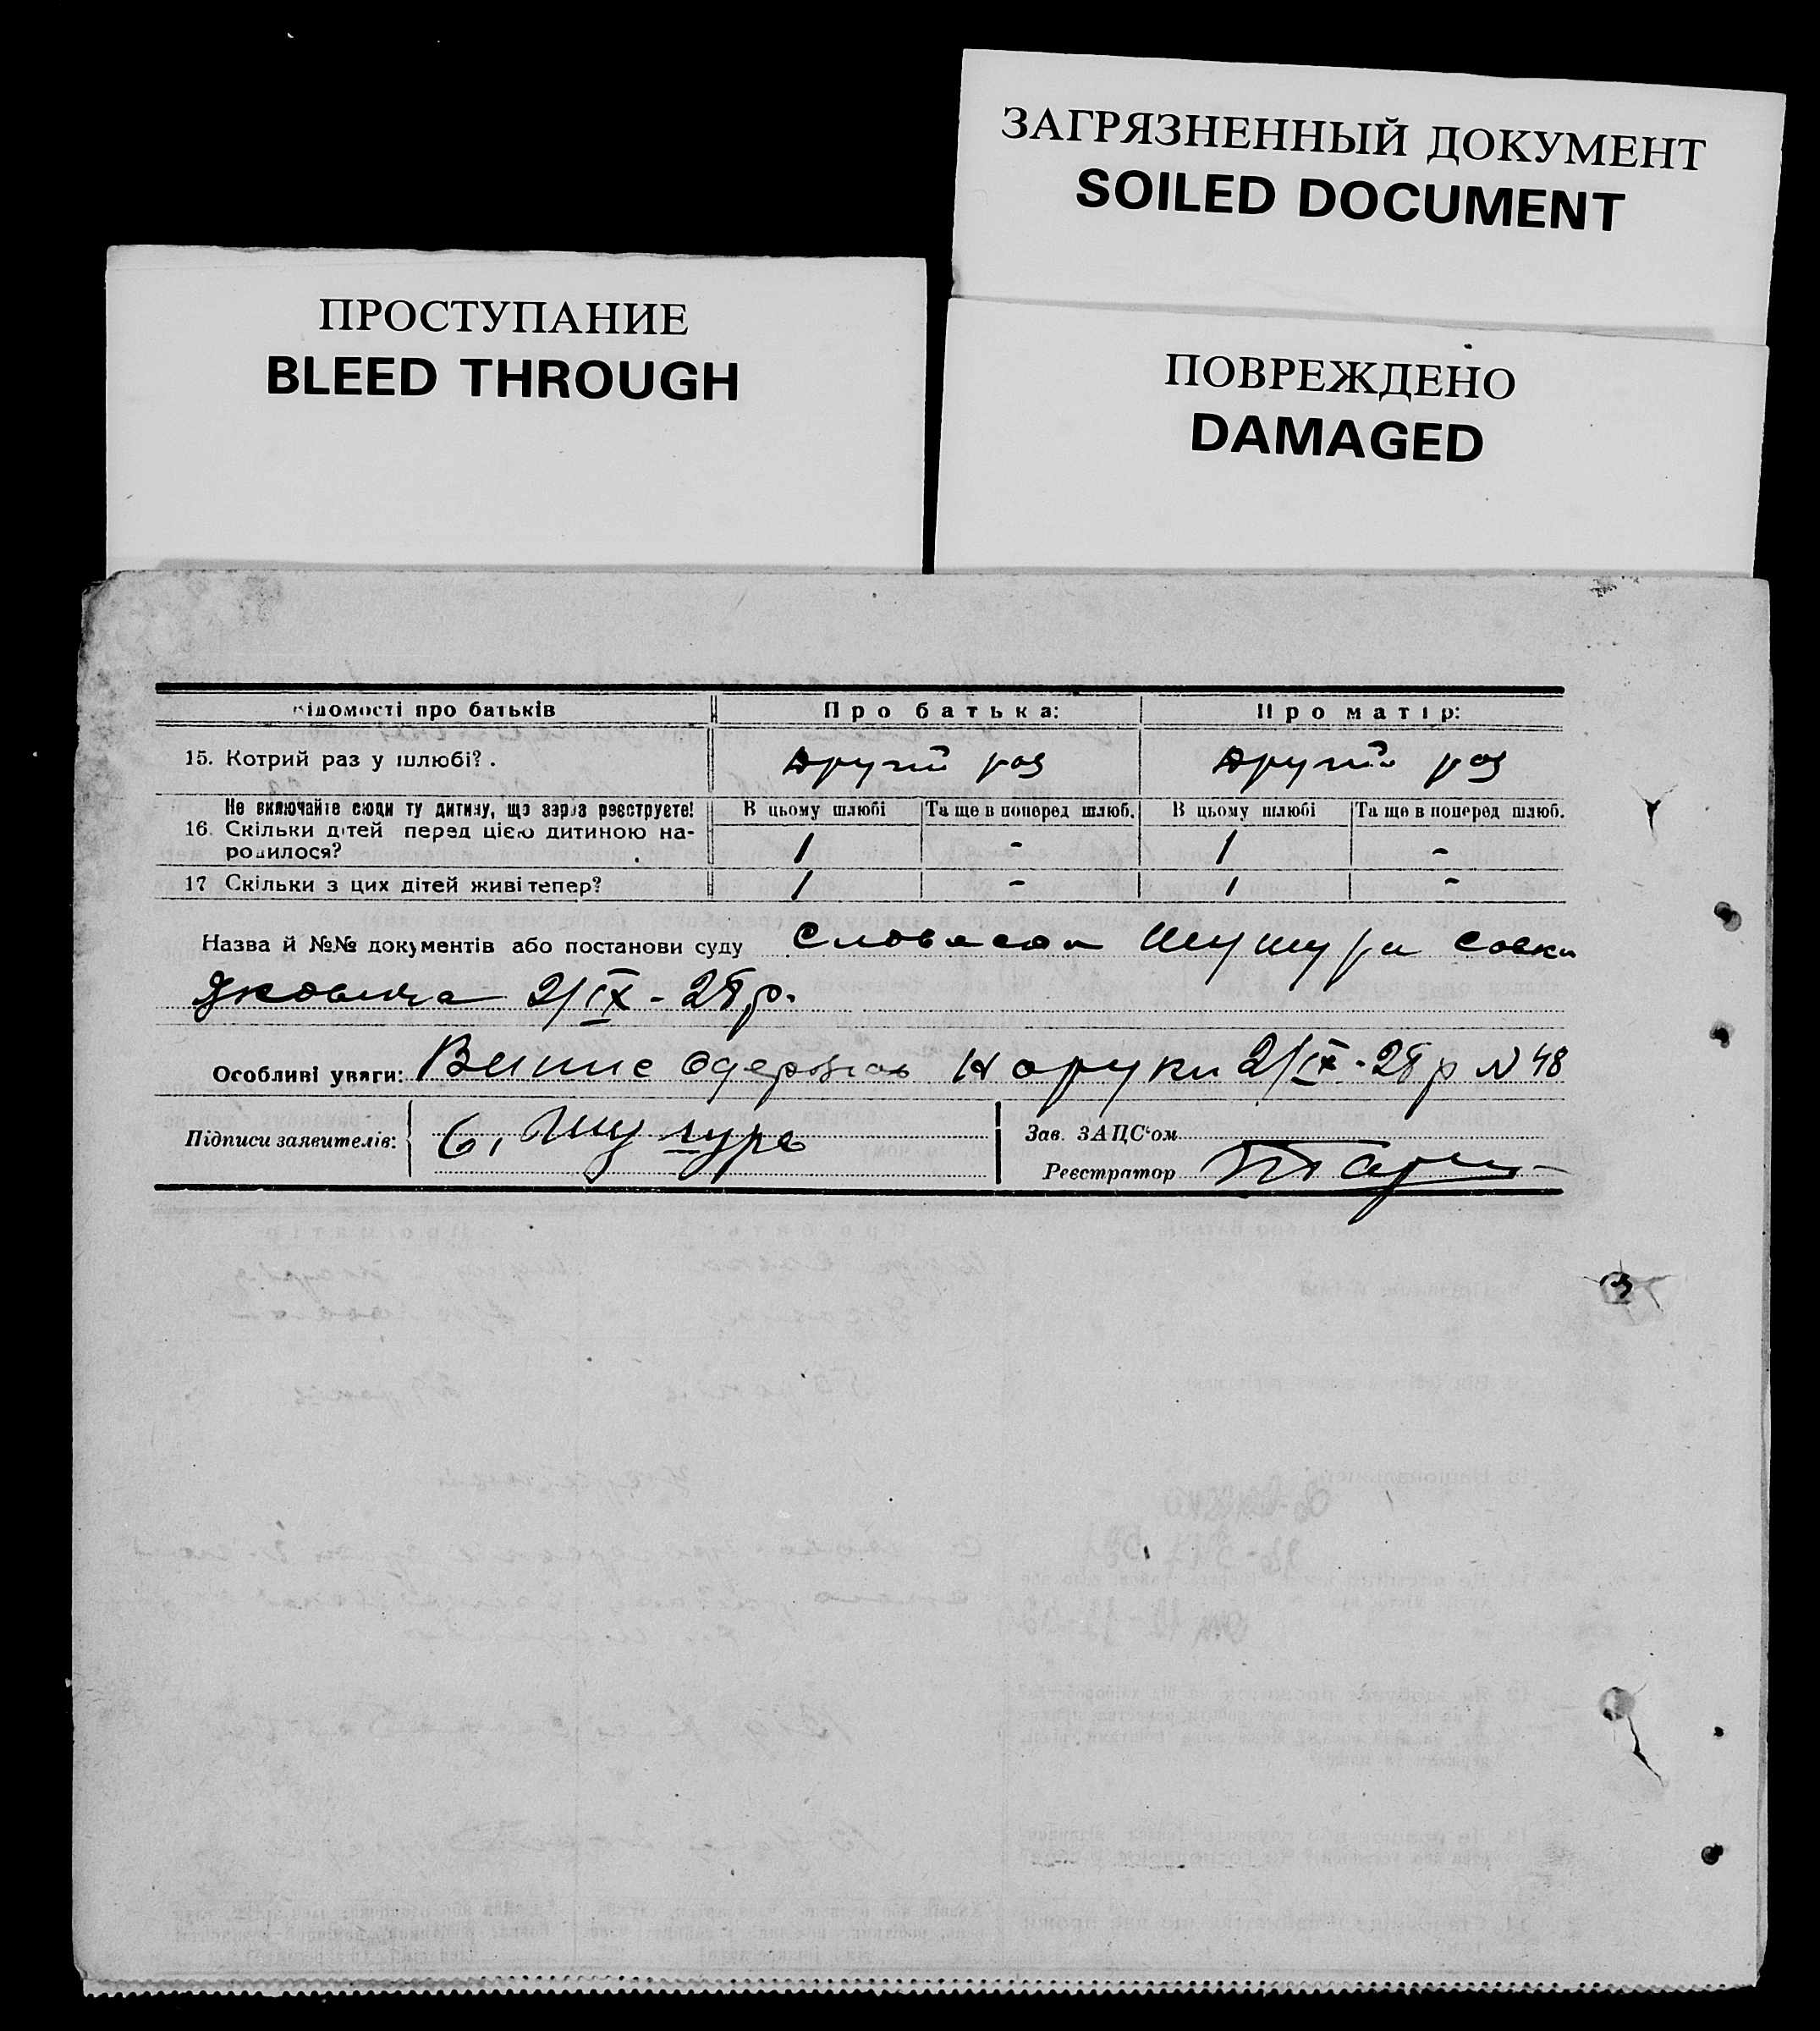 ЗАГРЯЗНЕННЫЙ ДОКУМЕНТ
SOILED DOCUMENT
ПРОСТУПАНИЕ
BLEED THROUGH
ПОВРЕЖДЕНО
DAMAGED
ідомості про батьків Про батька: Про матір:
15. Котрий раз у шлюбі? . другий раз другий раз
Не включайте сюди ту дитину, що зараз реєструєте! В цьому шлюбі Та ще в поперед шлюб. В цьому шлюбі Та ще в поперед шлюб.
16. Скільки дітей перед цією дитиною на-
родилося? 1 - 1 -
17 Скільки з цих дітей живі тепер? 1 - 1 -
Назва й №№ документів або постанови суду Словасна Шушури Савки
Яковича 2/IX - 28 р.
Особливі уваги: Випис одержав на руки 2/IX - 28 р N 48
Підписи заявителів: С. Шушура
Зав. ЗАЦС'ом
Реєстратор